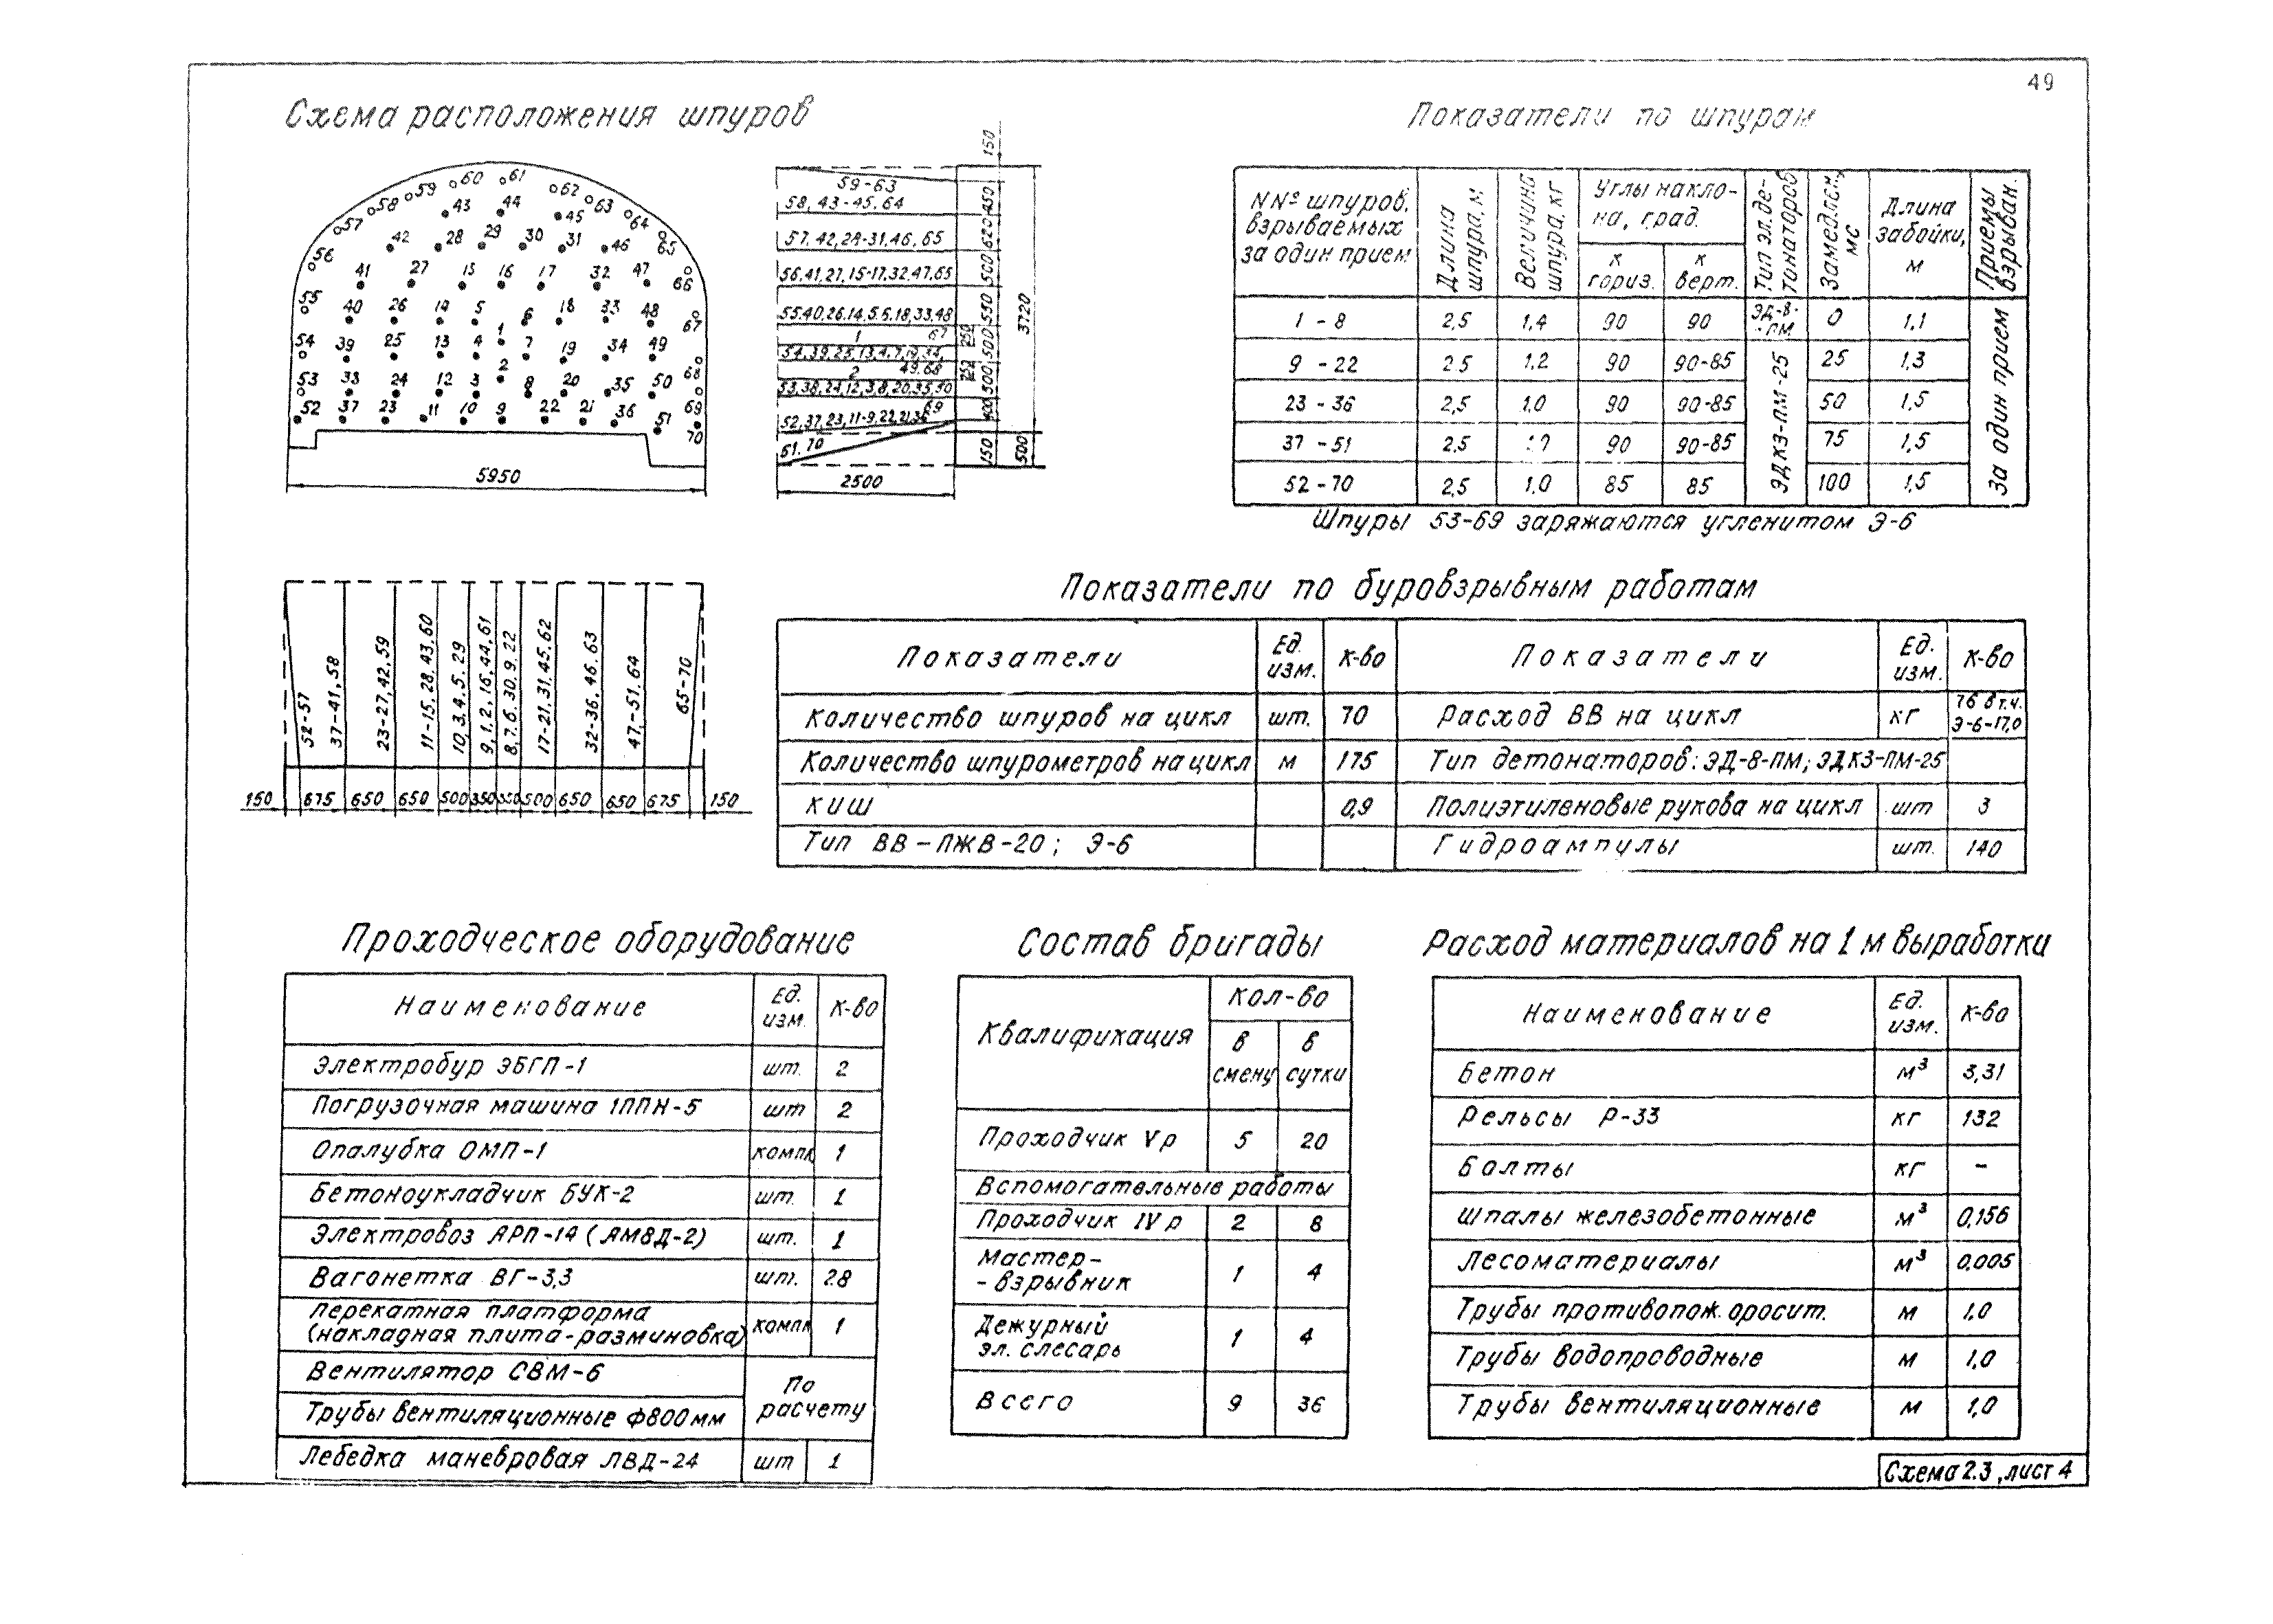 49
Схема расположения шпуров
59 60 61 62 63
58 43 44 45 64
57 42 28 29 30 31 46 65
56 41 27 15 16 17 32 47 66
55 40 26 14 5 6 18 33 48 67
54 39 25 13 4 1 7 19 34 49
53 38 24 12 3 2 8 20 35 50 68
52 37 23 11 10 9 22 21 36 51 69
70
5950
59-63
58, 43-45. 64
57. 42, 28-31, 46, 65
56, 41, 27, 15-17, 32. 47, 65
55.40.26.14.5.6.18,33,48
1 67
54.39.25.13.4.7.19.34,
2 49.68
53,38,24,12,3,8,20,35,50
52,37,23,11-9,22,21,36 69
51. 70
2500
150
450
620
500
550
500
500
400
150
250
252
3720
500
52-57
37-41, 58
23-27, 42, 59
11-15, 28, 43, 60
10, 3, 4, 5. 29
9, 1, 2, 16, 44, 61
8, 7, 6. 30, 9. 22
17-21, 31, 45. 62
32-36, 46. 63
47-51. 64
65-70
150 675 650 650 500 350 350 500 650 650 675 150
Показатели по шпурам
NNº шпуров, взрываемых за один прием
Длина шпура, м
Величина шпура, кг
Углы наклона, град.
к гориз.
к верт.
Тип эл. детонаторов
Замедлен, мс
Длина забойки, м
Приемы взрыван.
1 - 8 2,5 1,4 90 90 ЭД-8-ПМ 0 1,1
9 - 22 2.5 1.2 90 90-85 25 1,3
23 - 36 2,5 1.0 90 90-85 50 1,5
37 - 51 2.5 90 90-85 75 1,5
52 - 70 2,5 1.0 85 85 100 1,5
ЭДКЗ-ПМ-25
За один прием
Шпуры 53-69 заряжаются угленитом Э-6
Показатели по буровзрывным работам
Показатели Ед. изм. К-во Показатели Ед. изм. К-во
Количество шпуров на цикл шт. 70 Расход ВВ на цикл кг 76 в т.ч. Э-6-17,0
Количество шпурометров на цикл м 175 Тип детонаторов: ЭД-8-ПМ; ЭДКЗ-ПМ-25
КИШ 0,9 Полиэтиленовые рукова на цикл шт 3
Тип ВВ-ПЖВ-20; Э-6 Гидроампулы шт. 140
Проходческое оборудование
Наименование Ед. изм. К-во
Электробур ЭБГП-1 шт. 2
Погрузочная машина 1ППН-5 шт 2
Опалубка ОМП-1 компл 1
Бетоноукладчик БУК-2 шт. 1
Электровоз АРП-14 (АМ8Д-2) шт. 1
Вагонетка ВГ-3,3 шт. 28
Перекатная платформа
(накладная плита-разминовка) компл 1
Вентилятор СВМ-6
Трубы вентиляционные ф800мм
По расчету
Лебедка маневровая ЛВД-24 шт 1
Состав бригады
Квалификация
Кол-во
в смену
в сутки
Проходчик Vр 5 20
Вспомогательные работы
Проходчик IVр 2 8
Мастер-
-взрывник 1 4
Дежурный
эл. слесарь 1 4
Всего 9 36
Расход материалов на 1 м выработки
Наименование Ед. изм. К-во
Бетон м³ 3,31
Рельсы Р-33 кг 132
Болты кг -
Шпалы железобетонные м³ 0,156
Лесоматериалы м³ 0,005
Трубы противопож. оросит. м 1,0
Трубы водопроводные м 1,0
Трубы вентиляционные м 1,0
Схема 2.3, лист 4